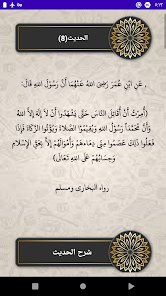 ٩:١٢
الحديث(8)
عَنِ ابْنِ عُمَرَ رَضِيَ اللهُ عَنْهُمَا أَنَّ رَسُوْلَ اللهِ قَالَ:
(أُمِرْتُ أَنْ أُقَاتِلَ النَّاسَ حَتَّى يَشْهَدُوا أَنْ لاَ إِلَهَ إِلاَّ اللهُ
وَأَنَّ مُحَمَّدَاً رَسُوْلُ اللهِ وَيُقِيْمُوْا الصَّلاةَ وَيُؤْتُوا الزَّكَاةَ فَإِذَا
فَعَلُوا ذَلِكَ عَصَمُوا مِنِّي دِمَاءَهُمْ وَأَمْوَالَهُمْ إِلاَّ بِحَقِّ الإِسْلامِ
وَحِسَابُهُمْ عَلَى اللهِ تَعَالَى)
رواه البخارى ومسلم
شرح الحديث